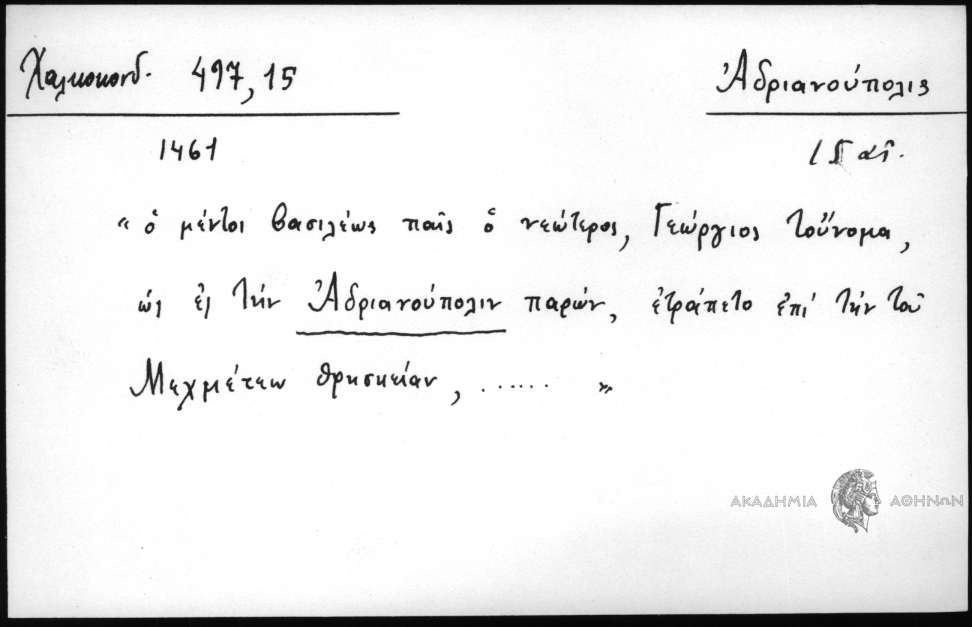 Χαλκοκονδ. 497,15 Ἀδριανούπολις
1461 15 αἰ.
“ ὁ μέντοι βασιλέως παῖς ὁ νεώτερος, Γεώργιος τοὔνομα,
ὡς ἐς τὴν Ἀδριανούπολιν παρῆν, ἐτράπετο ἐπὶ τὴν τοῦ
Μεχμέτεω θρησκείαν, ...... ”
ΑΚΑΔΗΜΙΑ ΑΘΗΝΩΝ